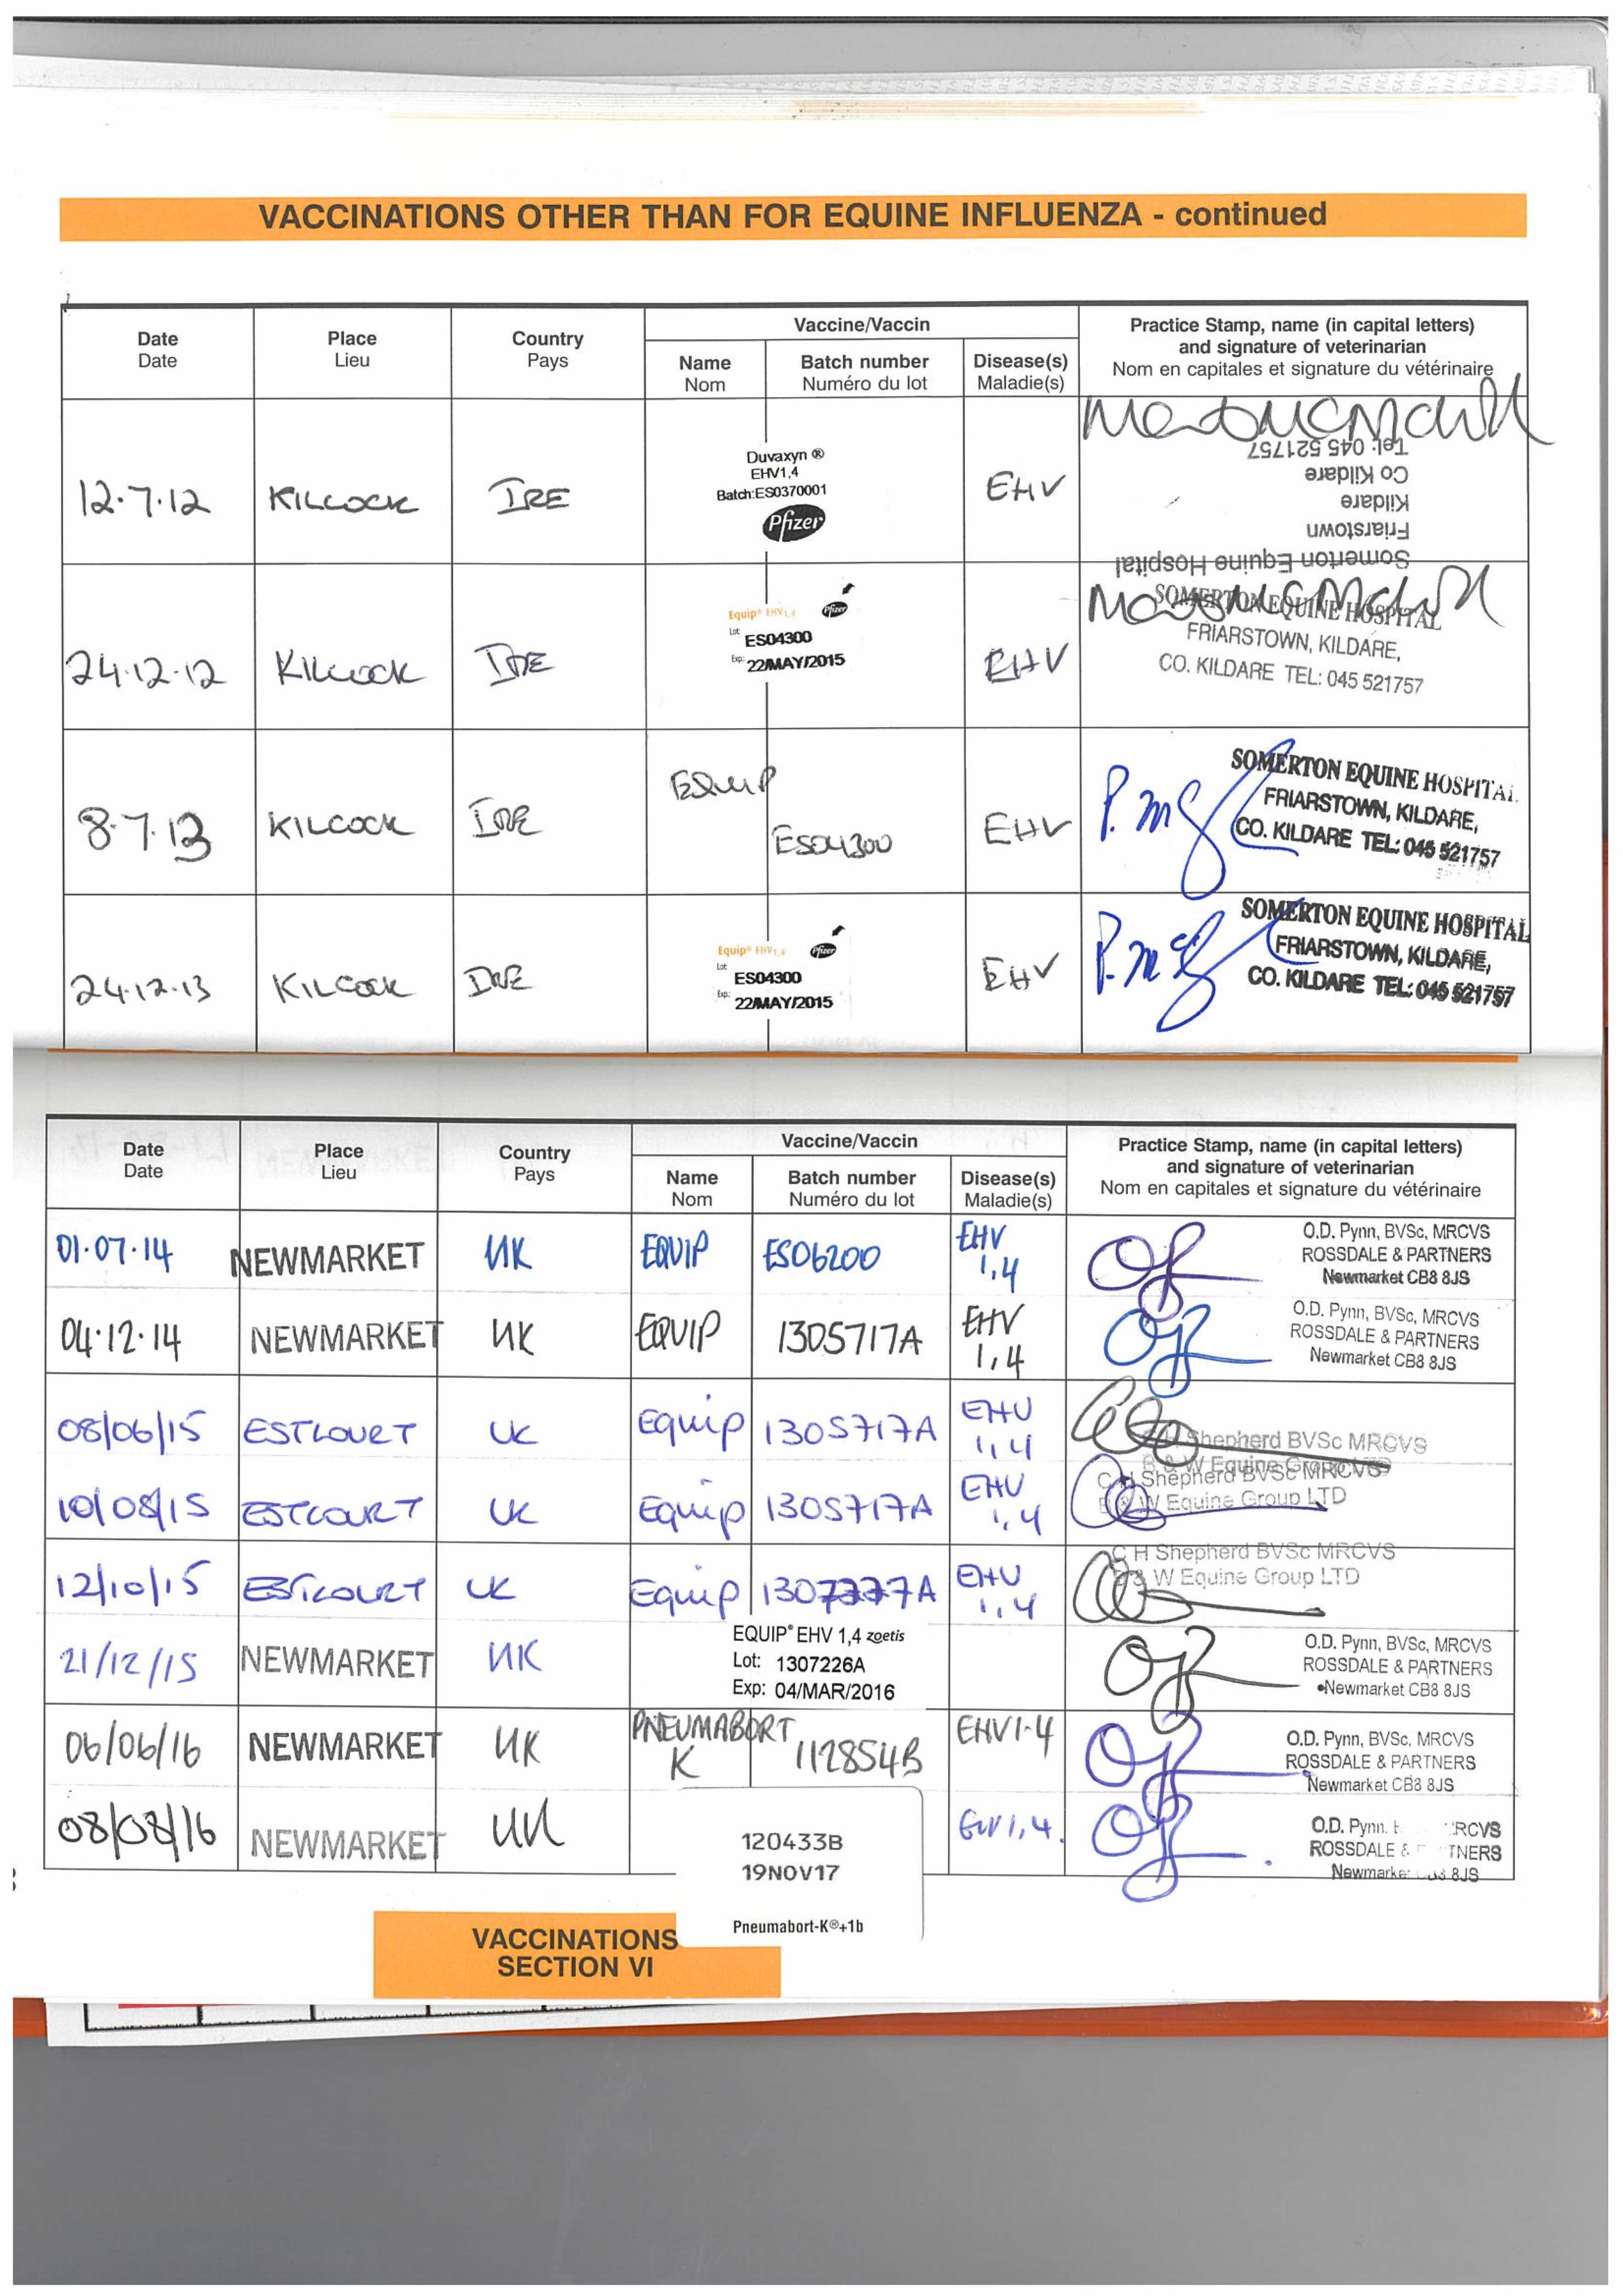 VACCINATIONS OTHER THAN FOR EQUINE INFLUENZA - continued
Date Place Country Vaccine/Vaccin Practice Stamp, name (in capital letters)
Date Lieu Pays and signature of veterinarian
Name Batch number Disease(s) Nom en capitales et signature du vétérinaire
Nom Numéro du lot Maladie(s)
12.7.12 KILCOCK IRE EHV
Duvaxyn ®
EHV1,4
Batch:ES0370001
Pfizer
Somerton Equine Hospital
Friarstown
Kildare
Co Kildare
Tel: 045 521757
24.12.12 KILCOCK IRE EHV
Equip® EHV1,4 Pfizer
Lot: ES04300
Exp: 22/MAY/2015
SOMERTON EQUINE HOSPITAL
FRIARSTOWN, KILDARE,
CO. KILDARE TEL: 045 521757
8.7.13 KILCOCK IRE EQUIP ES04300 EHV
SOMERTON EQUINE HOSPITAL
FRIARSTOWN, KILDARE,
CO. KILDARE TEL: 045 521757
24.12.13 KILCOCK IRE EHV
Equip® EHV1,4 Pfizer
Lot ES04300
Exp: 22/MAY/2015
SOMERTON EQUINE HOSPITAL
FRIARSTOWN, KILDARE,
CO. KILDARE TEL: 045 521757
Date Place Country Vaccine/Vaccin Practice Stamp, name (in capital letters)
Date Lieu Pays and signature of veterinarian
Name Batch number Disease(s) Nom en capitales et signature du vétérinaire
Nom Numéro du lot Maladie(s)
01.07.14 NEWMARKET UK EQUIP ES06200 EHV 1,4
O.D. Pynn, BVSc, MRCVS
ROSSDALE & PARTNERS
Newmarket CB8 8JS
04.12.14 NEWMARKET UK EQUIP 1305717A EHV 1,4
O.D. Pynn, BVSc, MRCVS
ROSSDALE & PARTNERS
Newmarket CB8 8JS
08/06/15 ESTCOURT UK Equip 1305717A EHV 1,4
Shepherd BVSc MRCVS
B & W Equine Group LTD
10/08/15 ESTCOURT UK Equip 1305717A EHV 1,4
C H Shepherd BVSc MRCVS
B & W Equine Group LTD
12/10/15 ESTCOURT UK Equip EHV 1,4
C H Shepherd BVSc MRCVS
B & W Equine Group LTD
21/12/15 NEWMARKET UK
EQUIP® EHV 1,4 zoetis
Lot: 1307226A
Exp: 04/MAR/2016
O.D. Pynn, BVSc, MRCVS
ROSSDALE & PARTNERS
Newmarket CB8 8JS
06/06/16 NEWMARKET UK PNEUMABORT K 112854B EHV1-4
O.D. Pynn, BVSc, MRCVS
ROSSDALE & PARTNERS
Newmarket CB8 8JS
08/08/16 NEWMARKET UK EHV 1,4.
120433B
19NOV17
Pneumabort-K®+1b
O.D. Pynn.
ROSSDALE &
8JS
VACCINATIONS
SECTION VI